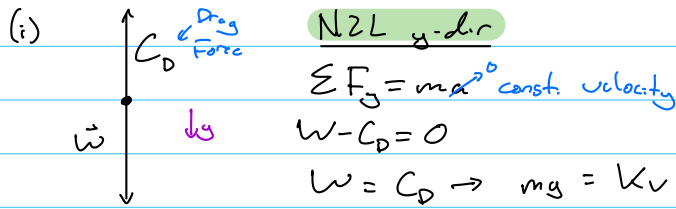 (i)
C_D
Drag
Force
W⃗
↓y
N2L y-dir
ΣF_y = ma → 0 const. velocity
W - C_D = 0
W = C_D → mg = Kv